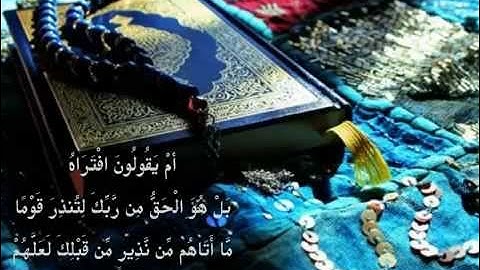 أَمْ يَقُولُونَ افْتَرَاهُ
بَلْ هُوَ الْحَقُّ مِن رَّبِّكَ لِتُنذِرَ قَوْمًا
مَّا أَتَاهُم مِّن نَّذِيرٍ مِّن قَبْلِكَ لَعَلَّهُمْ